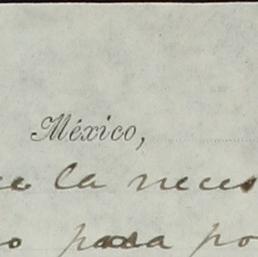 México,
la neces
o para po